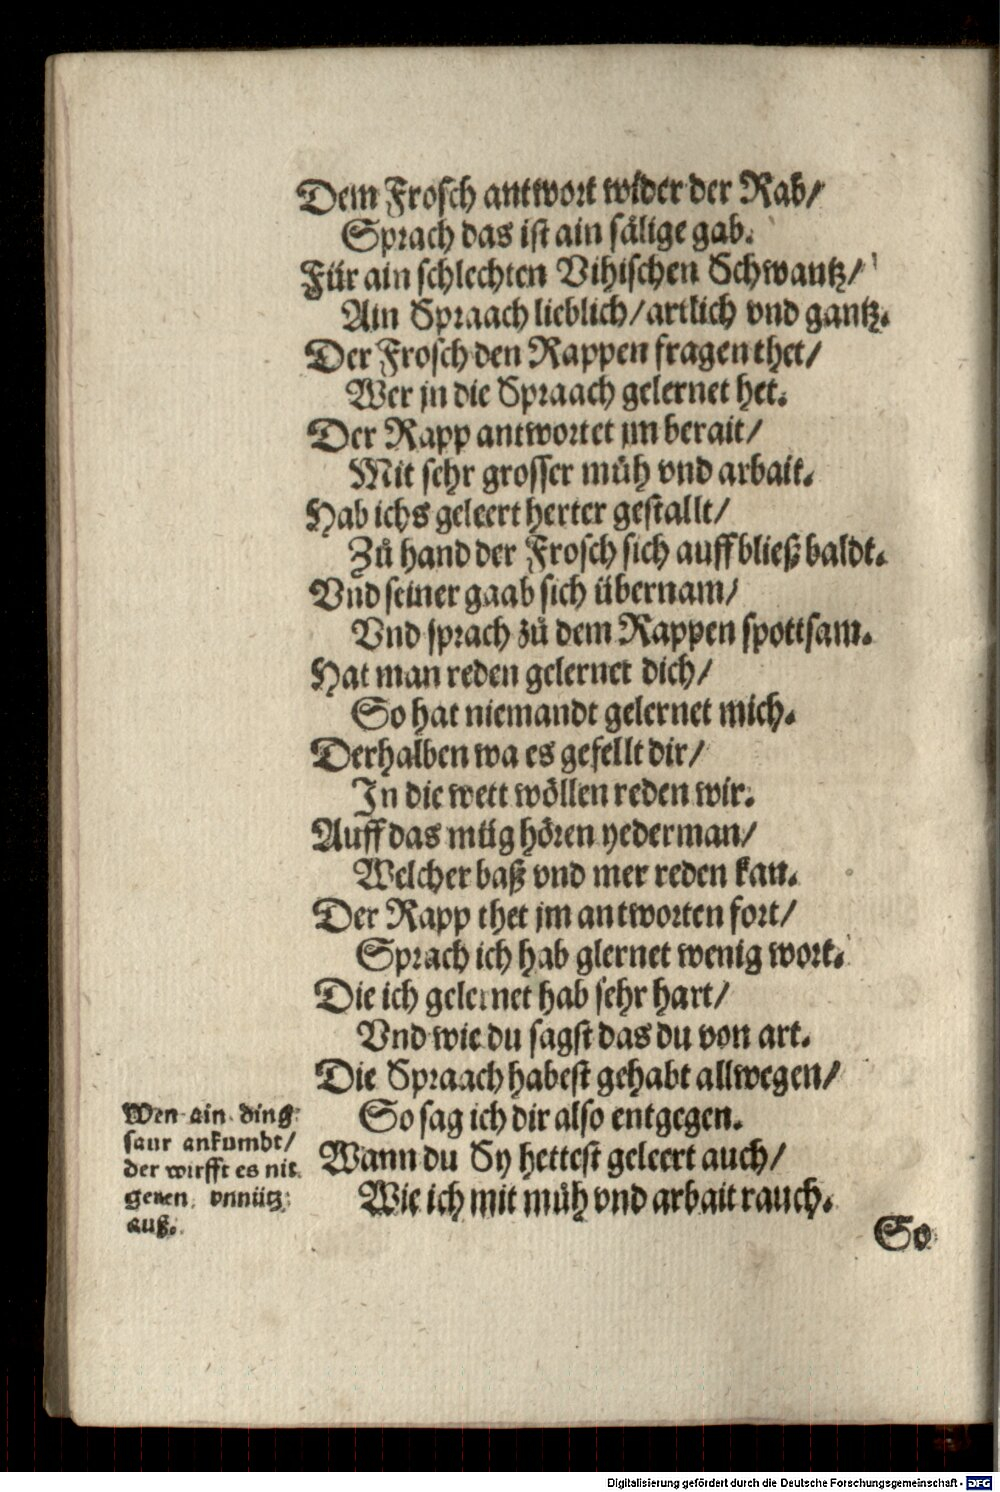 Dem Frosch antwort wider der Rab/
Sprach das ist ain sälige gab.
Für ain schlechten Vihischen Schwantz/
Ain Spraach lieblich/artlich vnd gantz.
Der Frosch den Rappen fragen thet/
Wer jn die Spraach gelernet het.
Der Rapp antwortet jm berait/
Mit sehr grosser müh vnd arbait.
Hab ichs geleert herter gestallt/
Zů hand der Frosch sich auffbließ baldt.
Vnd seiner gaab sich übernam/
Vnd sprach zů dem Rappen spottsam.
Hat man reden gelernet dich/
So hat niemandt gelernet mich.
Derhalben wa es gefellt dir/
In die wett wöllen reden wir.
Auff das müg hören yederman/
Welcher baß vnd mer reden kan.
Der Rapp thet jm antworten fort/
Sprach ich hab glernet wenig wort.
Die ich gelernet hab sehr hart/
Vnd wie du sagst das du von art.
Die Spraach habest gehabt allwegen/
So sag ich dir also entgegen.
Wann du Sy hettest geleert auch/
Wie ich mit müh vnd arbait rauch.
Wen ain ding
saur ankumbt/
der wirfft es nit
geren vnnütz
auß.
So
Digitalisierung gefördert durch die Deutsche Forschungsgemeinschaft - DFG